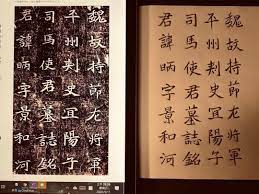 魏故持節左將軍
平州刾史宜陽子
司馬使君墓誌銘
君諱昞字景和河
魏故持節左將軍
平州刾史宜陽子
司馬使君墓誌銘
君諱昞字景和河